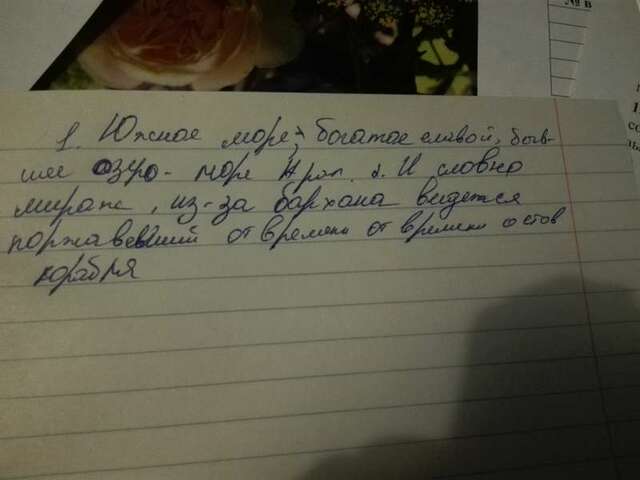 № в
1. Южное море, богатое славой, быв-
шее озро- море Арал. 2. И словно
мираж, из-за бархана видется
поржавевший от времени от времени остов
корабря